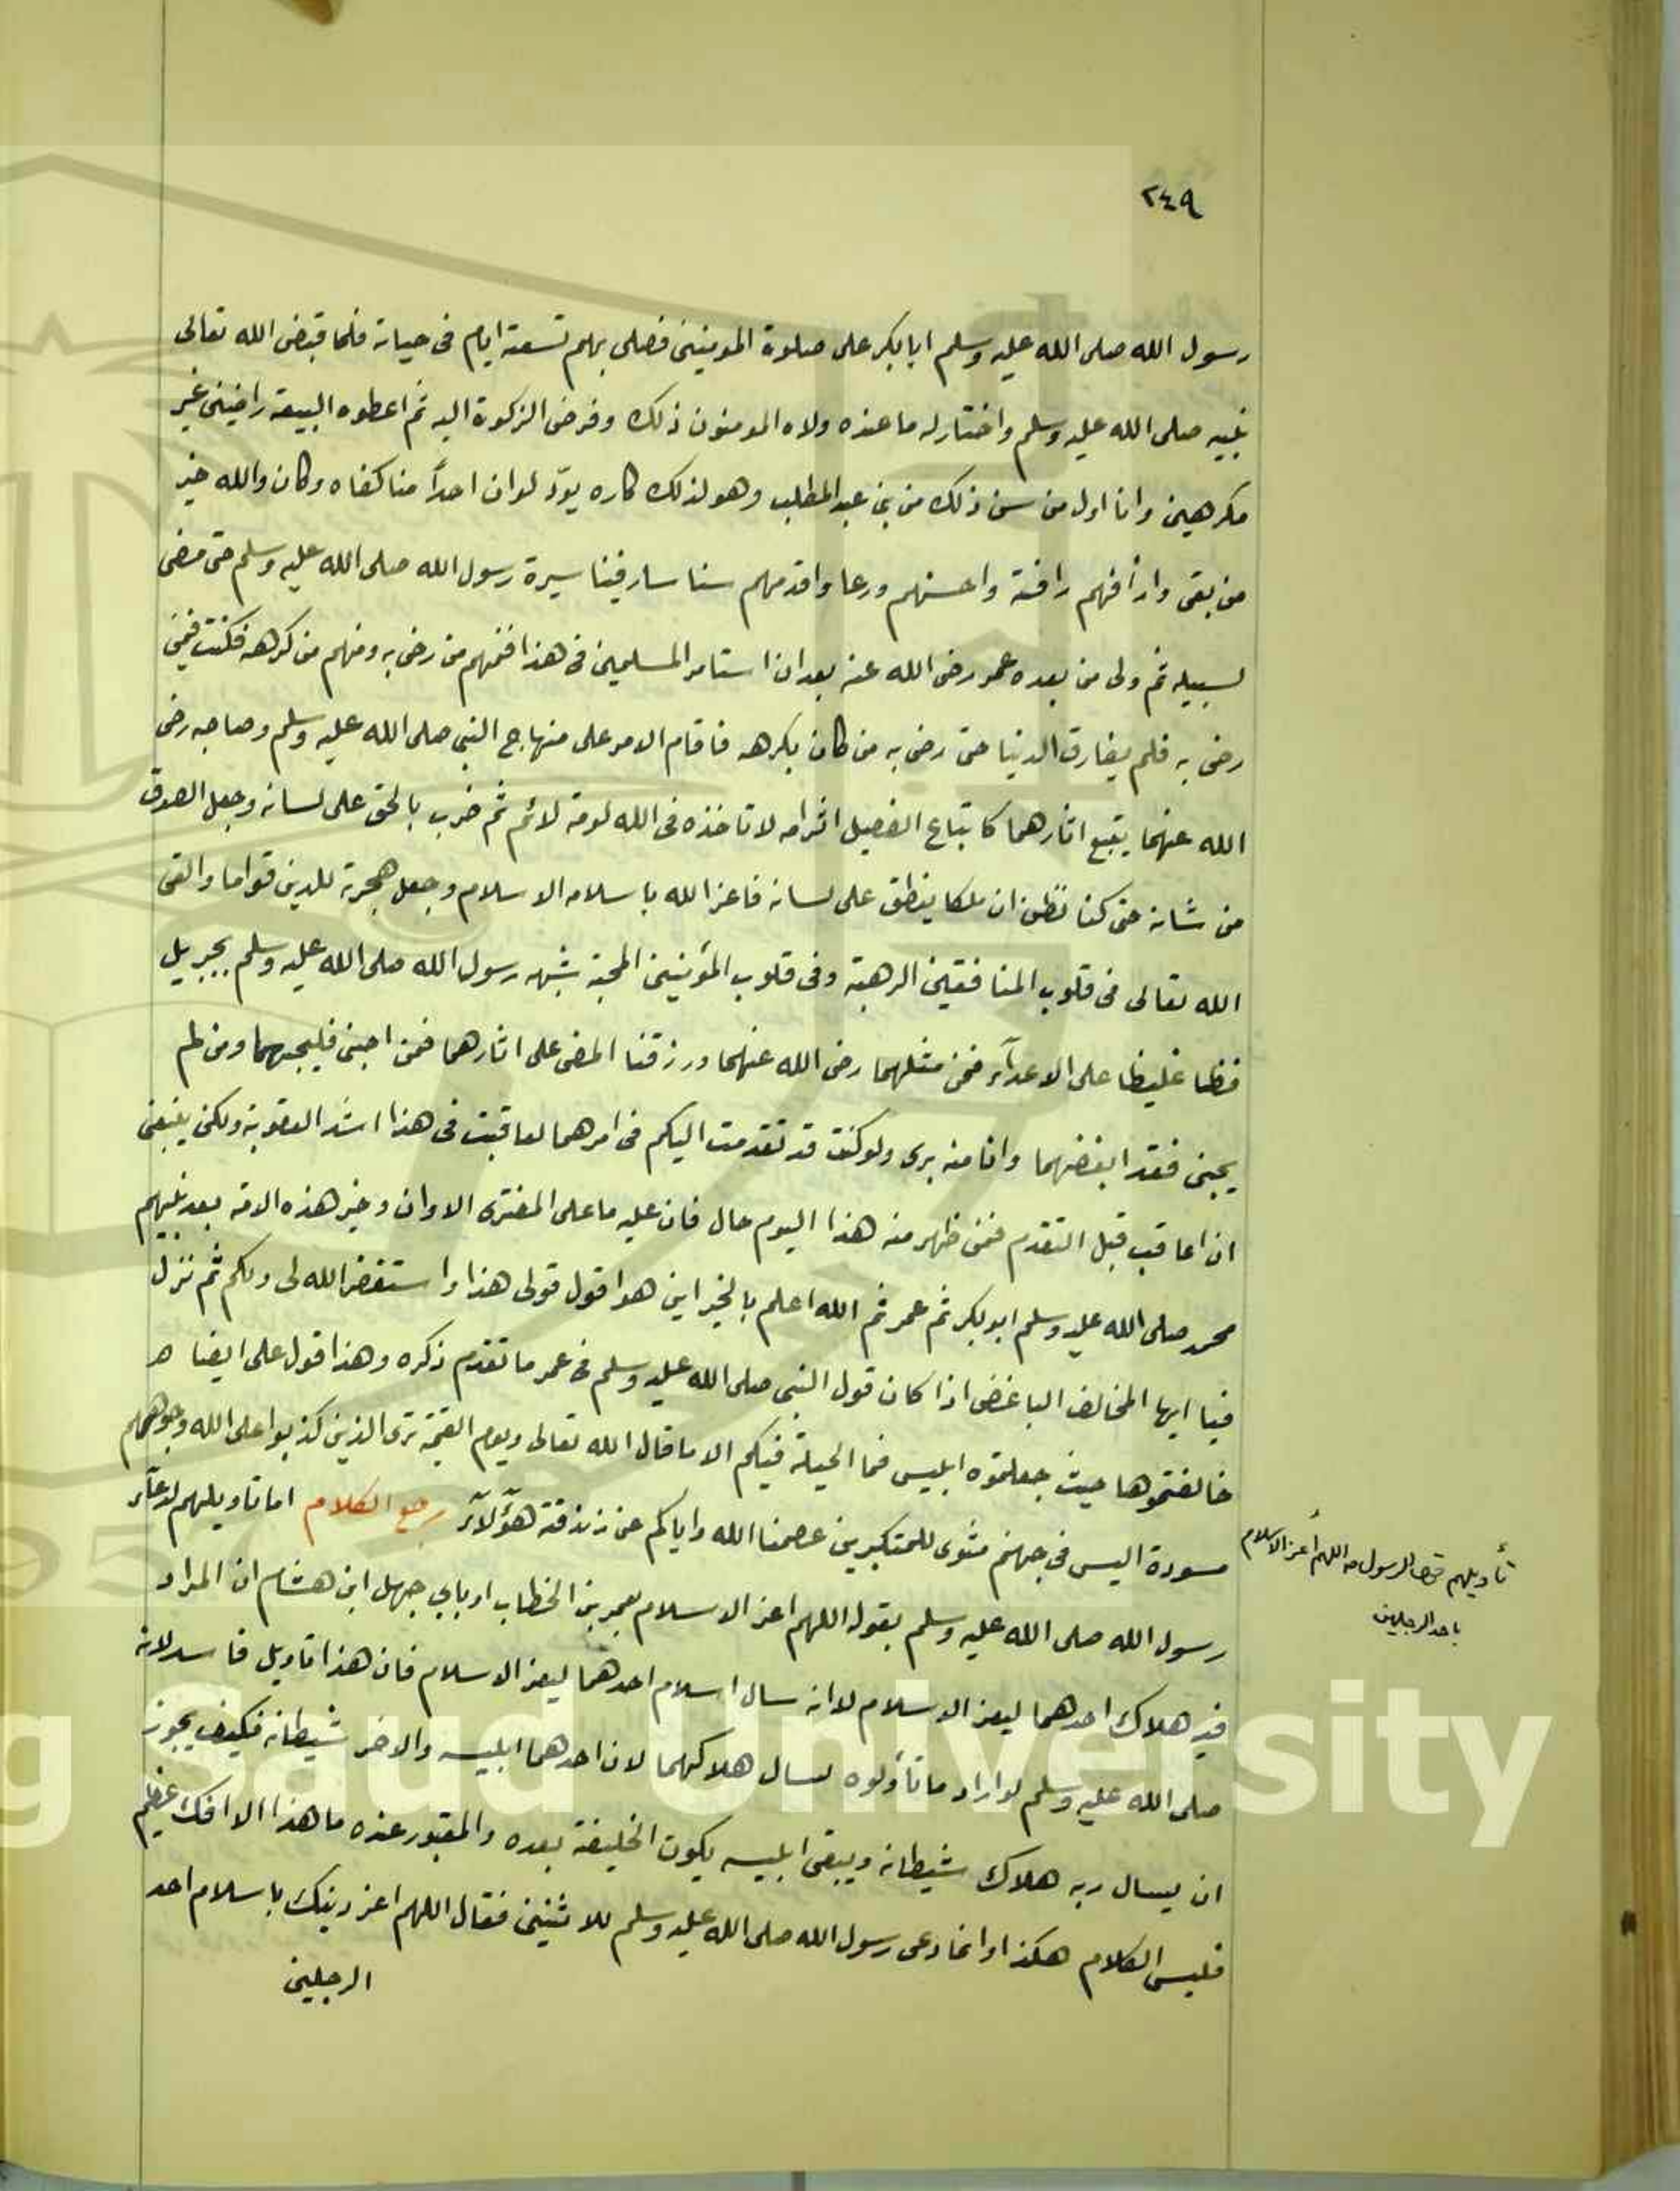 ٢٤٩
رسول الله صلى الله عليه وسلم ابا بكر على صلوة المومنين فصلى بهم تسعة ايام فى حياته فلما قبض الله تعالى
نبيه صلى الله عليه وسلم واختار له ما عنده ولاه المومنون ذلك وفرض الزكوة اليه ثم اعطوه البيعة راضين غير
مكرهين وانا اول من سن ذلك من بنى عبد المطلب وهو لذلك كاره يودّ لو ان احداً منا كفاه وكان والله خير
من بقى وارأفهم رافة واحسنهم ورعا واقدمهم سنا سار فينا سيرة رسول الله صلى الله عليه وسلم حتى مضى
لسبيله ثم ولى من بعده عمر رضى الله عنه بعد ان استامر المسلمين فى هذا فمنهم من رضى به ومنهم من كرهه فكنت فيمن
رضى به فلم يفارق الدنيا حتى رضى به من كان يكرهه فاقام الامر على منهاج النبى صلى الله عليه وسلم وصاحبه رضى
الله عنهما يتبع اثارهما كاتباع الفصيل اثر امه لا تاخذه فى الله لومة لائم ثم ضرب بالحق على لسانه وجعل الصدق
من شانه حتى كنا نظن ان ملكا ينطق على لسانه فاعز الله باسلامه الاسلام وجعل هجرته للدين قواما والقى
الله تعالى فى قلوب المنافقين الرهبة وفى قلوب المؤمنين المحبة شبهه رسول الله صلى الله عليه وسلم بجبريل
فظا غليظا على الاعدآء فمن مثلهما رضى الله عنهما ورزقنا المضى على اثارهما فمن احبنى فليحبهما ومن لم
يحبنى فقد ابغضهما وانا منه برى ولو كنت قد تقدمت اليكم فى امرهما لعاقبت فى هذا اشد العقوبة ولكن ينبغى
ان اعاقب قبل التقدم فمن ظهر منه هذا اليوم حال فان عليه ما على المفترى الا وان وخير هذه الامة بعد نبيهم
محمد صلى الله عليه وسلم ابو بكر ثم عمر ثم الله اعلم بالخير اين هو اقول قولى هذا واستغفر الله لى ولكم ثم نزل
فيا ايها المخالف الباغض اذا كان قول النبى صلى الله عليه وسلم فى عمر ما تقدم ذكره وهذا قول على ايضا
خالفتموها حيث جعلتموه ابليس فما الحيلة فيكم الا ما قال الله تعالى ويوم القيمة ترى الذين كذبوا على الله وجوههم
مسودة اليس فى جهنم مثوى للمتكبرين عصمنا الله واياكم عن زندقة هؤلآء رجع الكلام اما تاويلهم لدعآء
رسول الله صلى الله عليه وسلم بقوله اللهم اعز الاسلام بعمر بن الخطاب او بابى جهل ابن هشام ان المراد
فيه هلاك احدهما ليعز الاسلام لا انه سال اسلام احدهما ليعز الاسلام فان هذا تاويل فاسد لانه
صلى الله عليه وسلم لو اراد ما تأولوه لسال هلاكهما لان احدهما ابليسه والاخر شيطانه فكيف يجوز
ان يسال ربه هلاك شيطانه ويبقى ابليسه يكون الخليفة بعده والمقبور عنده ما هذا الا افك عظيم
فليس الكلام هكذا وانما دعى رسول الله صلى الله عليه وسلم للاثنين فقال اللهم اعز دينك باسلام احد
الرجلين
تأويلهم الرسول اللهم أعز الاسلام
باحد الرجلين
g Saud University